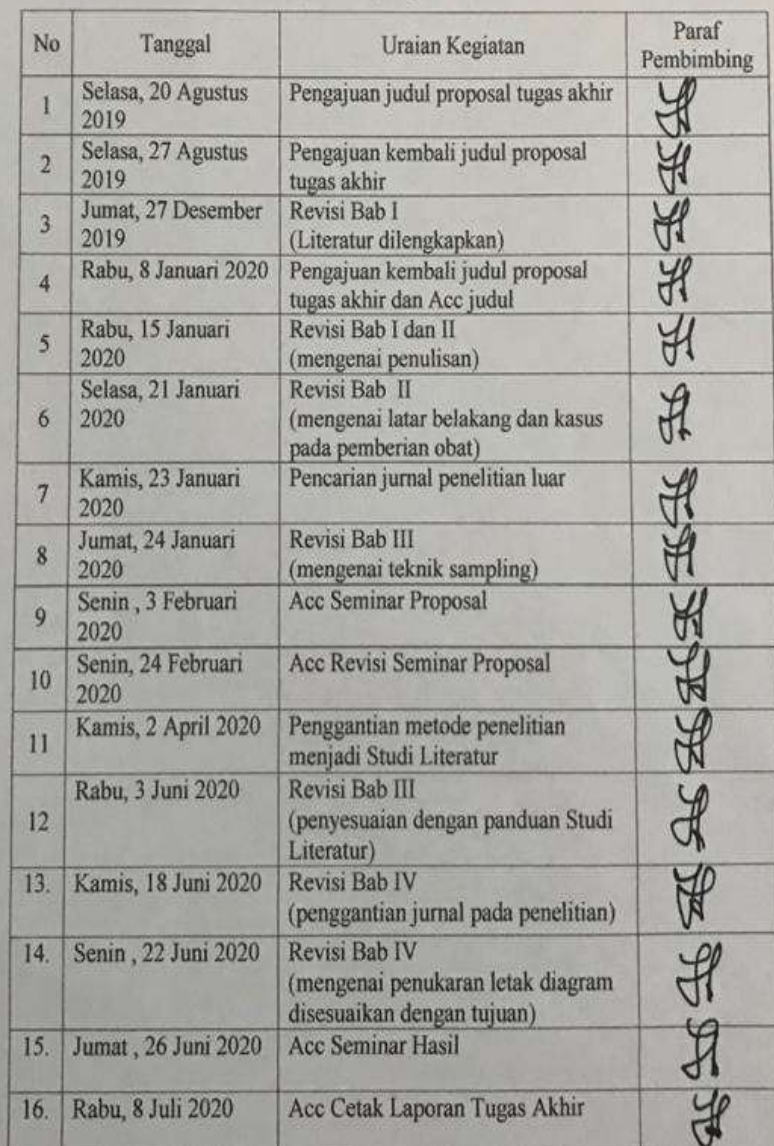 No Tanggal Uraian Kegiatan Paraf
Pembimbing
1 Selasa, 20 Agustus Pengajuan judul proposal tugas akhir
2019
2 Selasa, 27 Agustus Pengajuan kembali judul proposal
2019 tugas akhir
3 Jumat, 27 Desember Revisi Bab I
2019 (Literatur dilengkapkan)
4 Rabu, 8 Januari 2020 Pengajuan kembali judul proposal
tugas akhir dan Acc judul
5 Rabu, 15 Januari Revisi Bab I dan II
2020 (mengenai penulisan)
6 Selasa, 21 Januari Revisi Bab II
2020 (mengenai latar belakang dan kasus
pada pemberian obat)
7 Kamis, 23 Januari Pencarian jurnal penelitian luar
2020
8 Jumat, 24 Januari Revisi Bab III
2020 (mengenai teknik sampling)
9 Senin , 3 Februari Acc Seminar Proposal
2020
10 Senin, 24 Februari Acc Revisi Seminar Proposal
2020
11 Kamis, 2 April 2020 Penggantian metode penelitian
menjadi Studi Literatur
12 Rabu, 3 Juni 2020 Revisi Bab III
(penyesuaian dengan panduan Studi
Literatur)
13. Kamis, 18 Juni 2020 Revisi Bab IV
(penggantian jurnal pada penelitian)
14. Senin , 22 Juni 2020 Revisi Bab IV
(mengenai penukaran letak diagram
disesuaikan dengan tujuan)
15. Jumat , 26 Juni 2020 Acc Seminar Hasil
16. Rabu, 8 Juli 2020 Acc Cetak Laporan Tugas Akhir